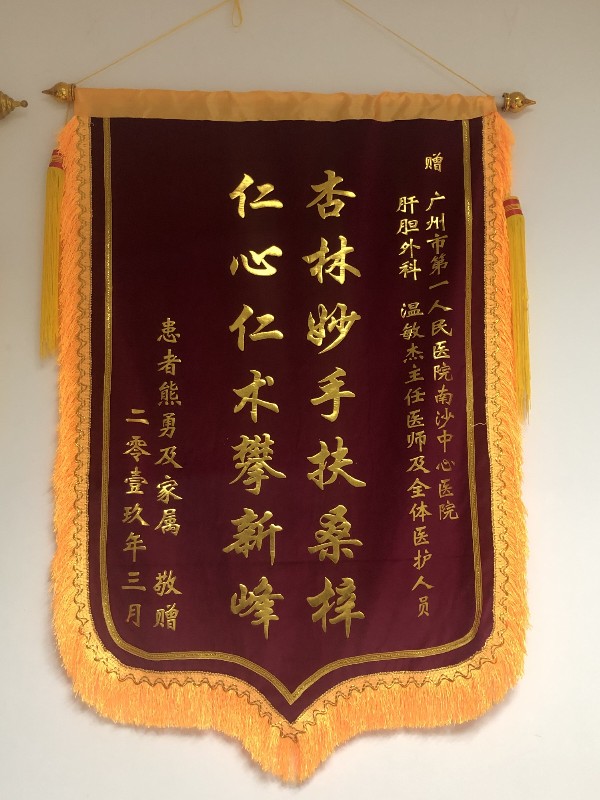 赠 广州市第一人民医院南沙中心医院
肝胆外科 温敏杰主任医师及全体医护人员
杏林妙手扶桑梓
仁心仁术攀新峰
患者熊勇及家属 敬赠
二零壹玖年三月